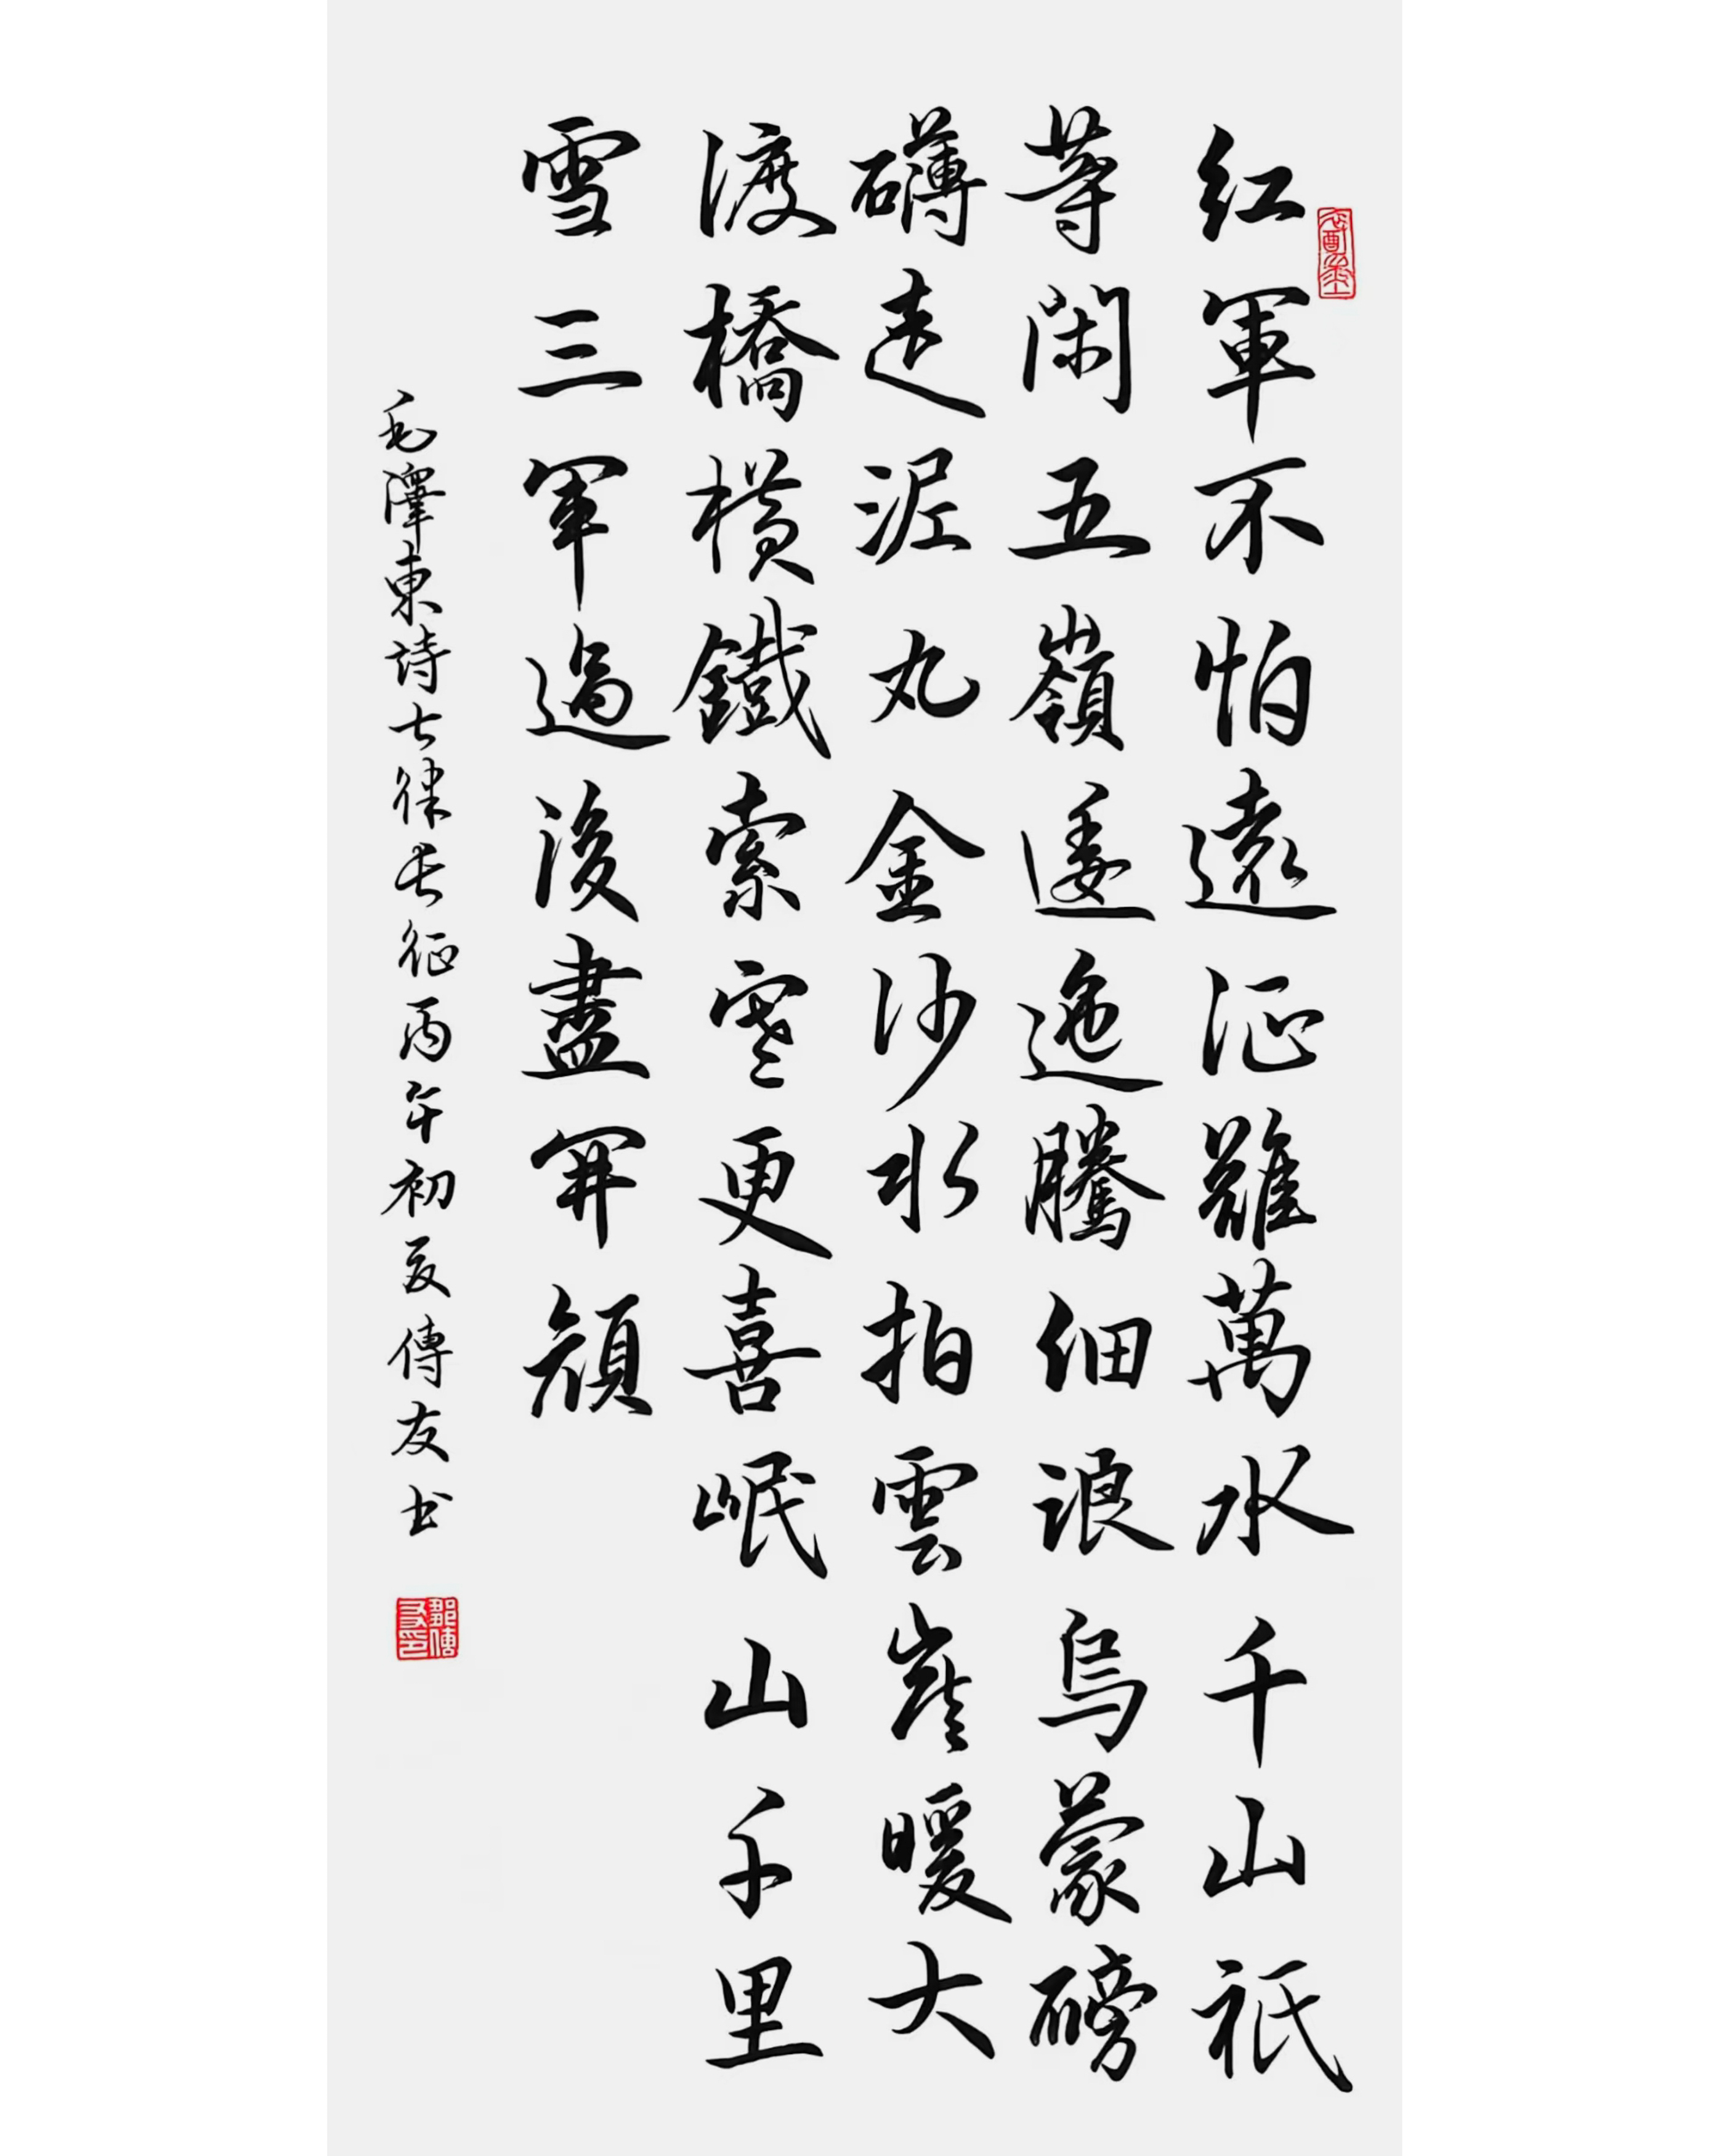 紅軍不怕遠征難萬水千山祇
等閑五嶺逶迤騰細浪烏蒙磅
礴走泥丸金沙水拍雲崖暖大
渡橋橫鐵索寒更喜岷山千里
雪三軍過後盡開顏
毛澤東詩七律長征丙午初夏傳友书